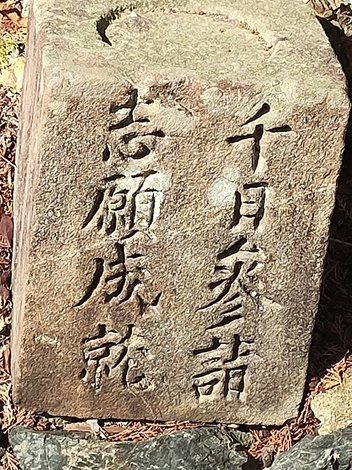 千日参詣
志願成就